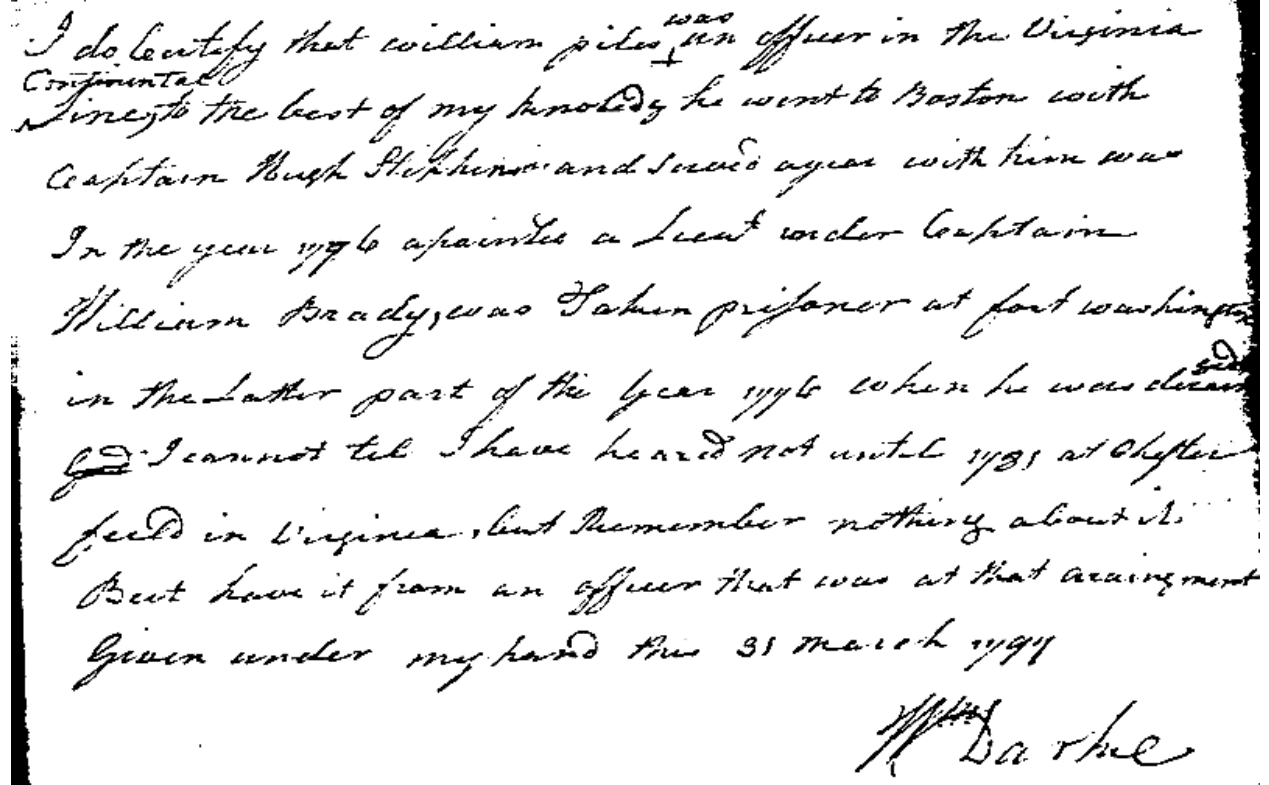 I do Certify that william piles was an officer in the Virginia
Continental
Line, to the best of my knoledg he went to Boston with
Captain Hugh Stephenson and served a year with him was
In the year 1776 apointed a Lieut under Captain
William Brady, was Taken prisoner at fort washington
in the Latter part of the year 1776 when he was
I cannot tel I have heared not until 1781 at Chester
feeld in Virginia, but Remember nothing about it.
But have it from an officer that was at that araingment
Given under my hand this 31 March 1797
Wm Darke